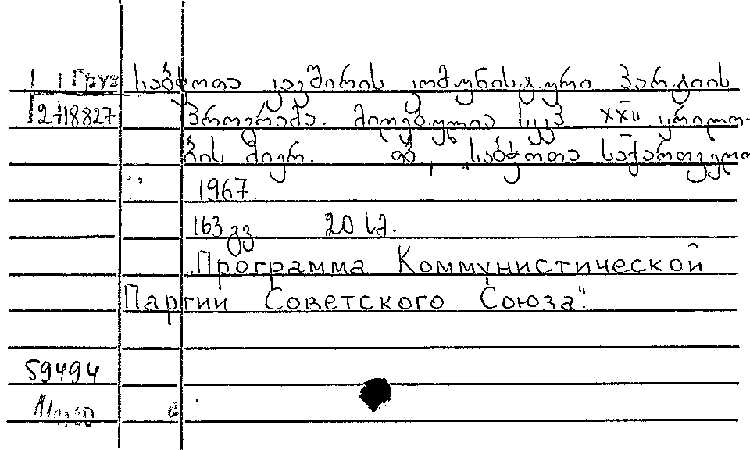 Груз საბჭოთა კავშირის კომუნისტური პარტიის
2718827 პროგრამა. მიღებულია სკკპ XXII ყრილო-
ბის მიერ. თბ., „საბჭოთა საქართველო
" 1967
163 გვ 20 კ.
Программа Коммунистической
Партии Советского Союза".
59494